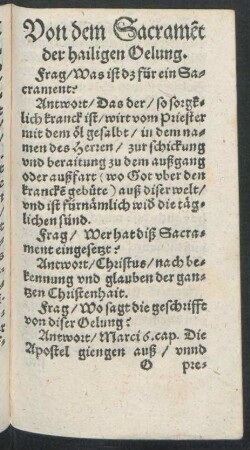 Von dem Sacramẽt
der hailigen Oelung.
Frag/ Was ist dz für ein Sa-
crament?
Antwort/ Das der/ so sorgk-
lich kranck ist/ wirt vom Priester
mit dem öl gesalbt/ in dem na-
men des Herren/ zur schickung
vnd beraitung zu dem außgang
oder außfart (wo Got vber den
kranckẽ gebüte) auß diser welt/
vnd ist fürnämlich wid die täg-
lichen sünd.
Frag/ Wer hat diß Sacra-
ment eingesetzt?
Antwort/ Christus/ nach be-
kennung vnd glauben der gan-
tzen Christenhait.
Frag/ Wo sagt die geschrifft
von diser Oelung?
Antwort/ Marci 6. cap. Die
Apostel giengen auß/ vnnd
O pre-